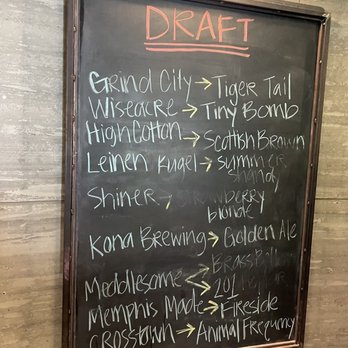 DRAFT
Grind City → Tiger Tail
Wiseacre → Tiny Bomb
High Cotton → Scottish Brown
Leinen Kugel → summer
shandy
Shiner → strawberry
blonde
Kona Brewing → Golden Ale
Brass
Meddlesome
201
Memphis Made → Fireside
Crosstown → Animal Frequncy